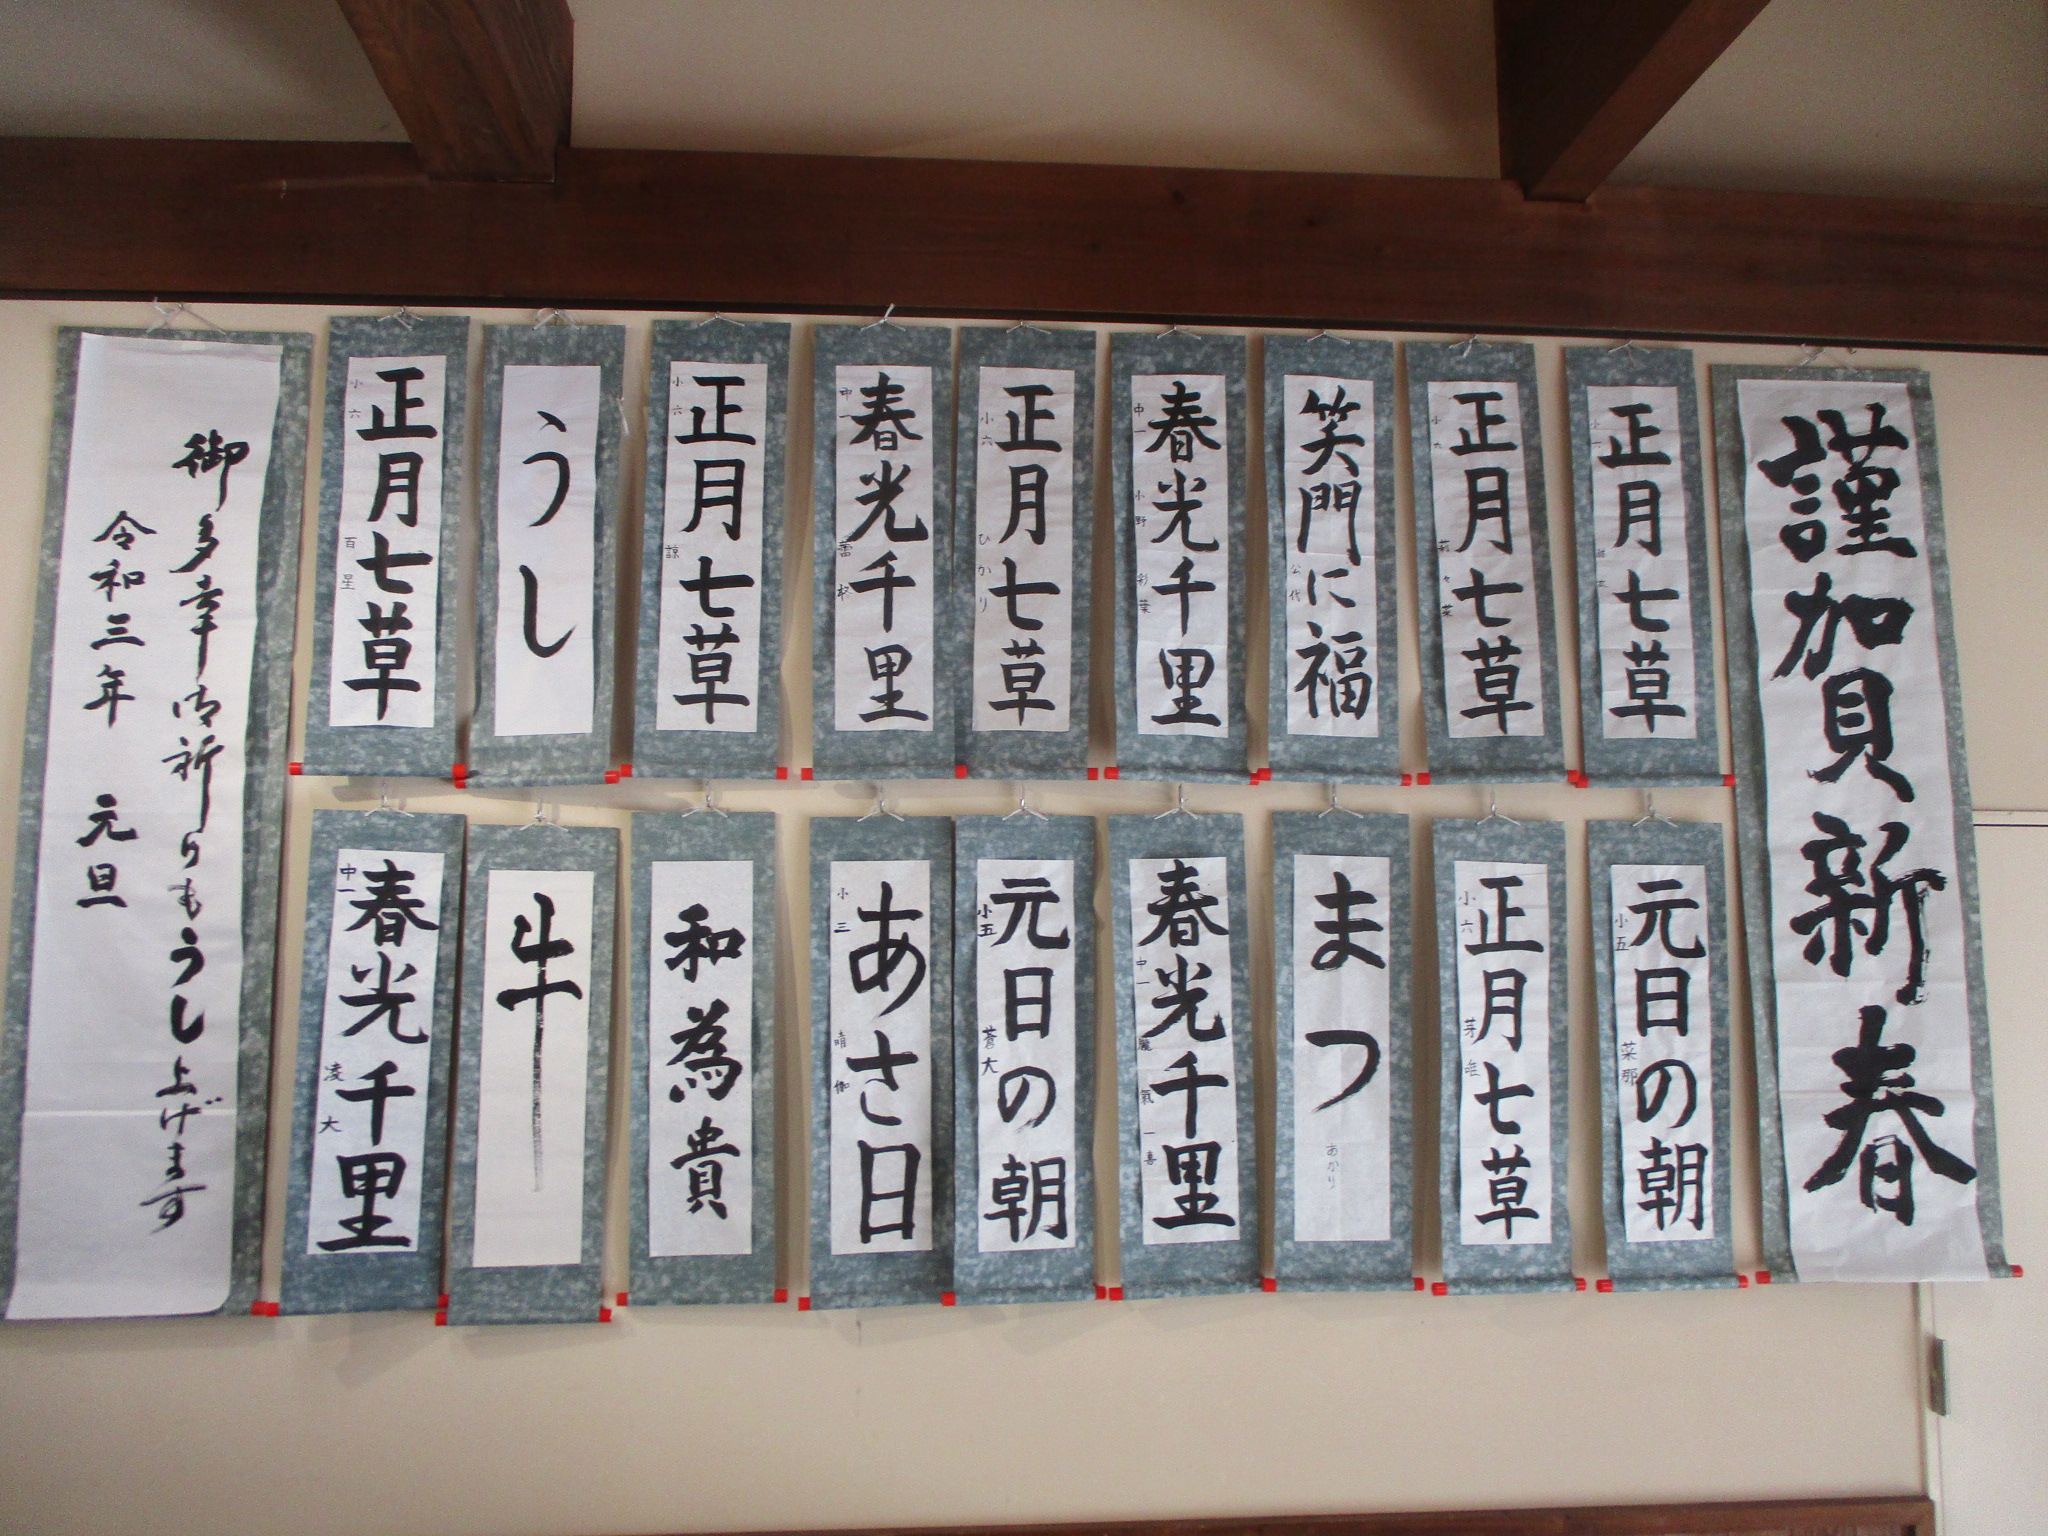 謹加貝新春
正月七草
小六
正月七草
小六
莉々菜
笑門に福
公代
春光千里
中一
小野彩葉
正月七草
小六
ひかり
春光千里
中一
正月七草
小六
諒
うし
正月七草
小六
百星
元日の朝
小五
菜那
正月七草
小六
芽唯
まつ
あかり
春光千里
中一
元日の朝
小五
蒼大
あさ日
小三
晴
和為貴
牛
春光千里
中一
凌大
御多幸御祈りもうし上げます
令和三年 元旦